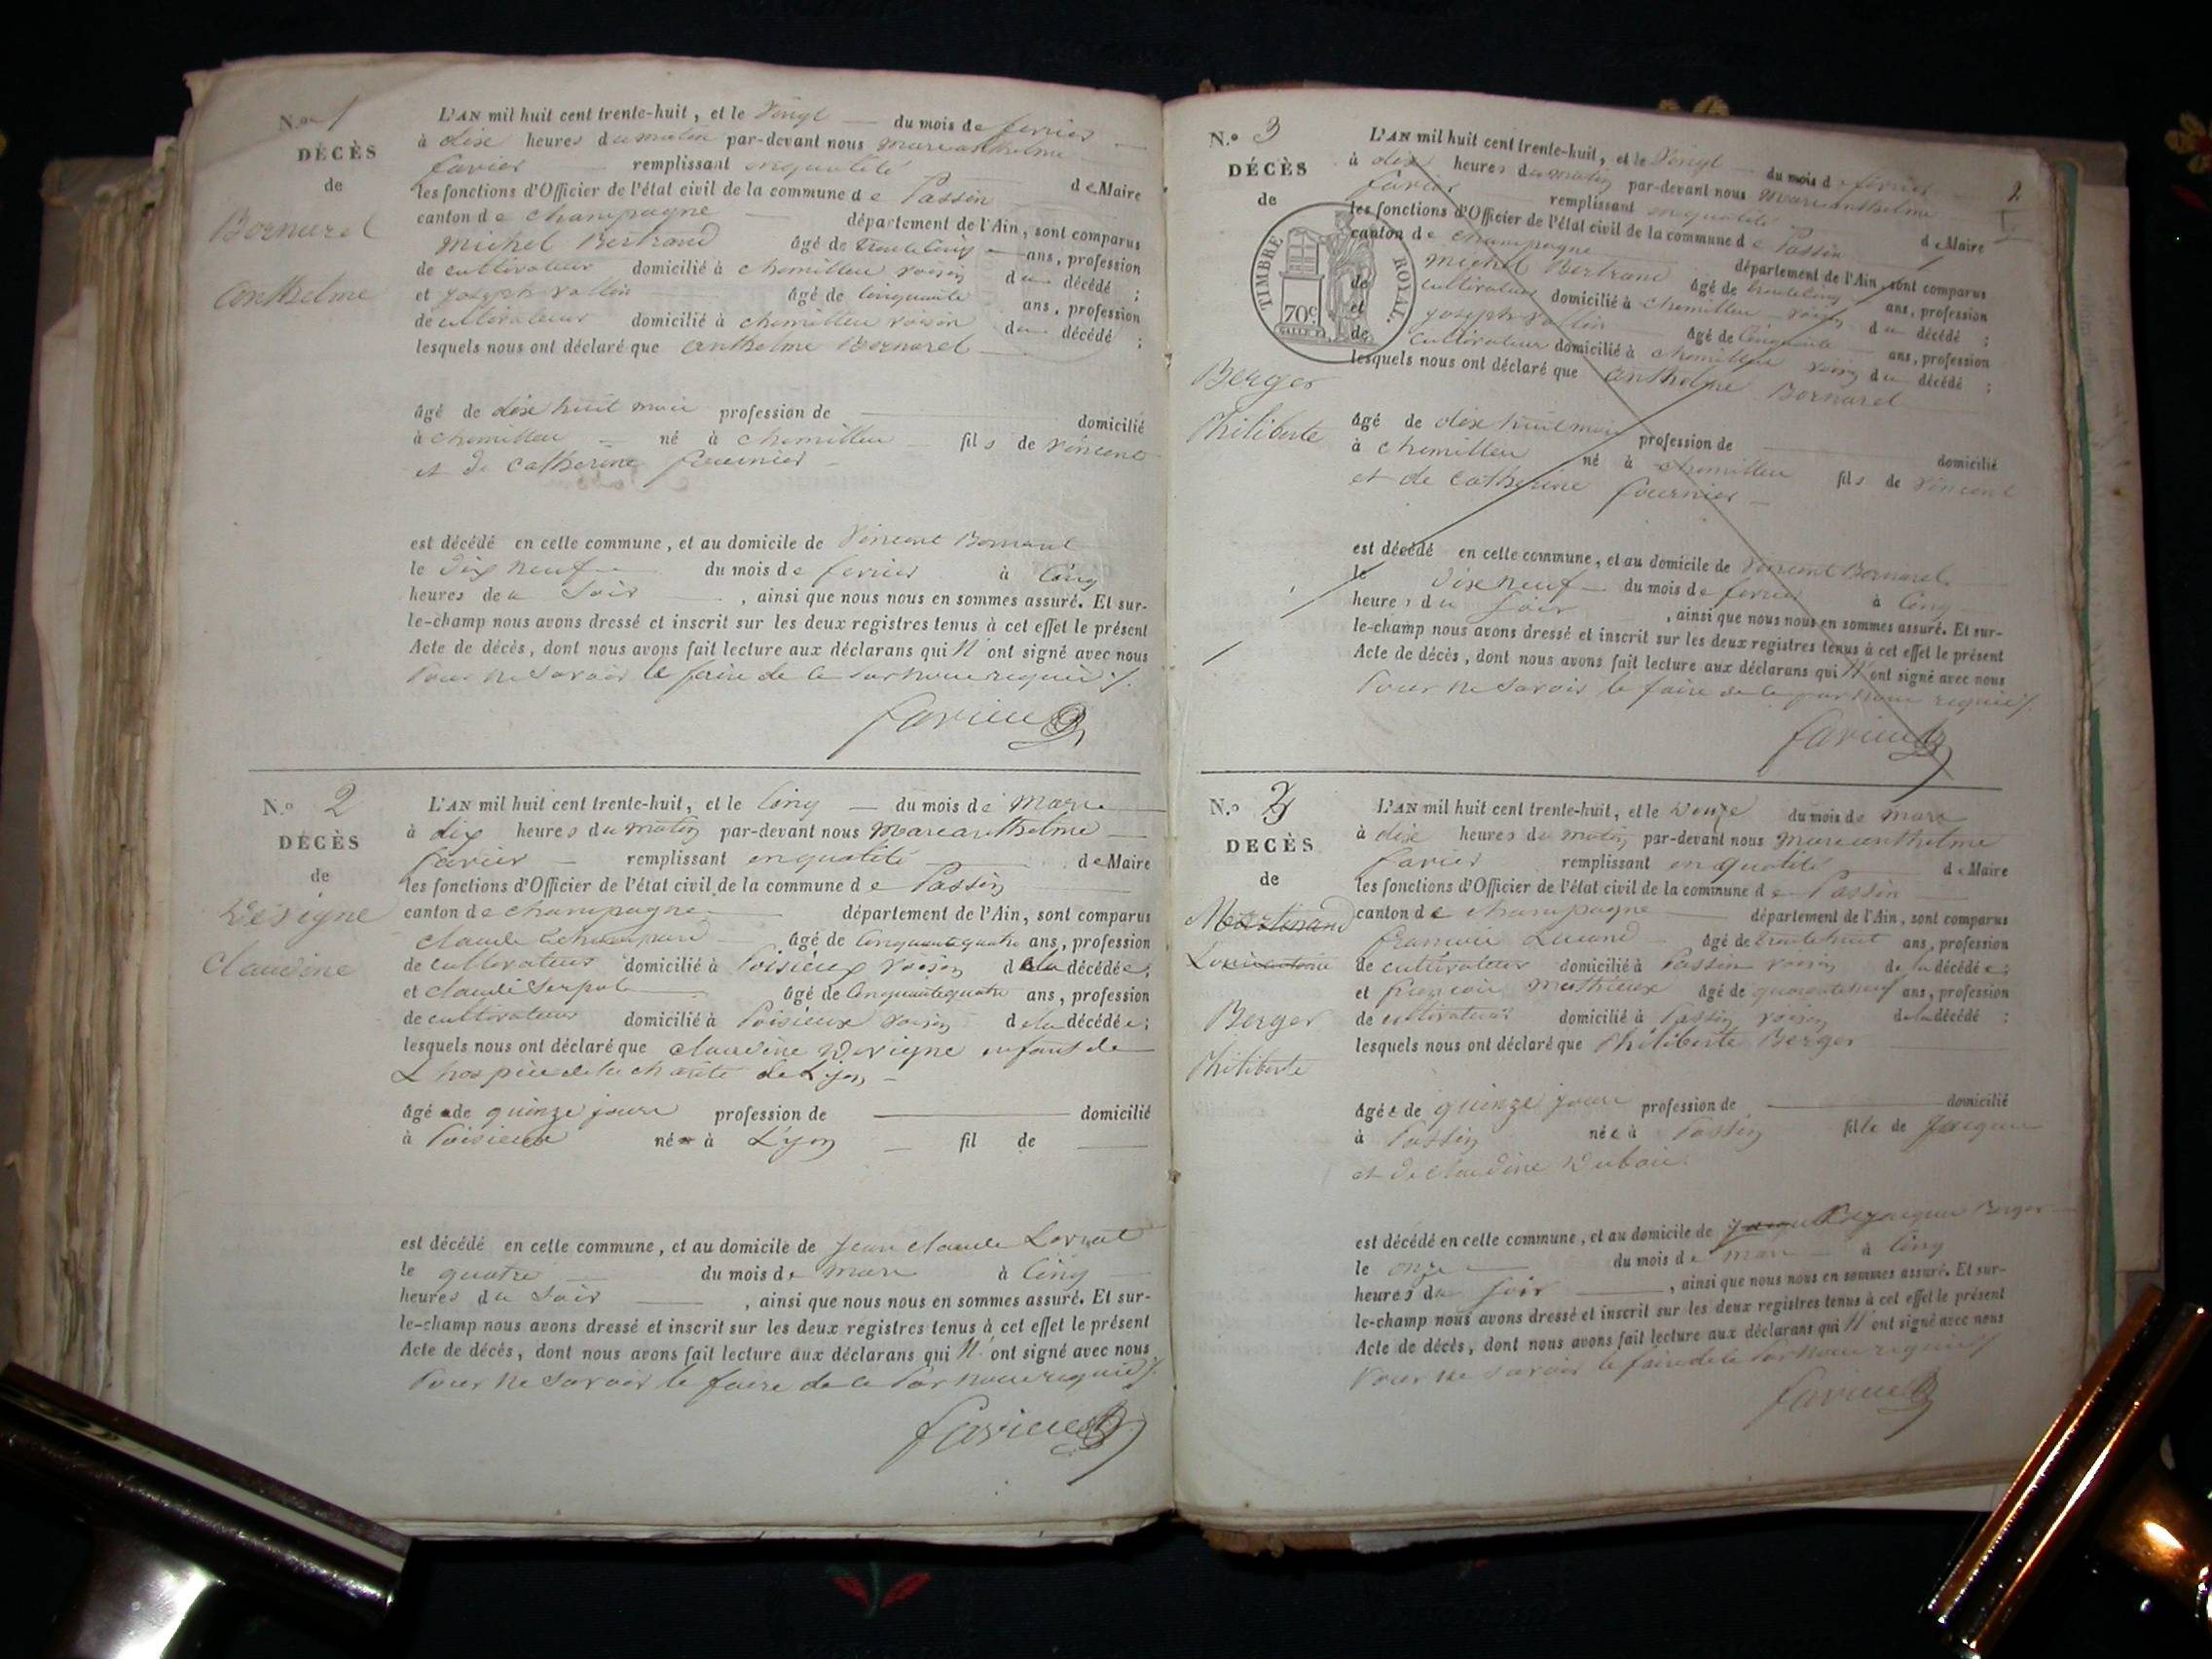 N.o 1
DÉCÈS
de
Bornarel
Anthelme
L'AN mil huit cent trente-huit, et le vingt du mois de fevrier
à dix heures du matin par-devant nous marcanthelme
favier remplissant enqualité de Maire
les fonctions d'Officier de l'état civil de la commune de Passin
canton de champagne département de l'Ain, sont comparus
michel Bertrand âgé de trentecinq ans, profession
de cultivateur domicilié à chemilleu voisin du décédé ;
et joseph vallin âgé de cinquante ans, profession
de cultivateur domicilié à chemilleu voisin du décédé ;
lesquels nous ont déclaré que anthelme Bornarel
âgé de dixhuit mois profession de domicilié
à chemilleu né à chemilleu fils de vincent
et de catherine fournier
est décédé en cette commune, et au domicile de vincent Bornarel
le dix neuf du mois de fevrier à cinq
heures du soir , ainsi que nous nous en sommes assuré. Et sur-
le-champ nous avons dressé et inscrit sur les deux registres tenus à cet effet le présent
Acte de décès, dont nous avons fait lecture aux déclarans qui N' ont signé avec nous
pour ne savoir le faire de ce par nous requis
favier
N.o 2
DÉCÈS
de
Devigne
Claudine
L'AN mil huit cent trente-huit, et le cinq du mois de mars
à dix heures du matin par-devant nous marcanthelme
favier remplissant enqualité de Maire
les fonctions d'Officier de l'état civil de la commune de Passin
canton de champagne département de l'Ain, sont comparus
claude âgé de cinquantequatre ans, profession
de cultivateur domicilié à Poisieux voisin de la décédée ;
et claude Serpol âgé de cinquantequatre ans, profession
de cultivateur domicilié à Poisieux voisin de la décédée ;
lesquels nous ont déclaré que claudine Devigne enfant de
L'hospice de la charité de Lyon
âgé de quinze jours profession de domicilié
à Poisieux né à Lyon fil de
est décédé en cette commune, et au domicile de jean claude
le quatre du mois de mars à cinq
heures du soir , ainsi que nous nous en sommes assuré. Et sur-
le-champ nous avons dressé et inscrit sur les deux registres tenus à cet effet le présent
Acte de décès, dont nous avons fait lecture aux déclarans qui N' ont signé avec nous
pour ne savoir le faire de ce par nous requis
favier
N.o 3
DÉCÈS
de
TIMBRE ROYAL.
70c
Berger
Philiberte
2
L'AN mil huit cent trente-huit, et le vingt du mois de fevrier
à dix heures du matin par-devant nous marcanthelme
favier remplissant enqualité de Maire
les fonctions d'Officier de l'état civil de la commune de Passin
canton de champagne département de l'Ain, sont comparus
michel Bertrand âgé de trentecinq ans, profession
de cultivateur domicilié à chemilleu voisin du décédé ;
et joseph vallin âgé de cinquante ans, profession
de cultivateur domicilié à chemilleu voisin du décédé ;
lesquels nous ont déclaré que anthelme Bornarel
âgé de dix huit mois profession de domicilié
à chemilleu né à chemilleu fils de vincent
et de catherine fournier
est décédé en cette commune, et au domicile de vincent Bornarel
le dixneuf du mois de fevrier à cinq
heures du soir , ainsi que nous nous en sommes assuré. Et sur-
le-champ nous avons dressé et inscrit sur les deux registres tenus à cet effet le présent
Acte de décès, dont nous avons fait lecture aux déclarans qui N' ont signé avec nous
pour ne savoir le faire de ce par nous requis
favier
N.o 3
DÉCÈS
de
Berger
Philiberte
L'AN mil huit cent trente-huit, et le douze du mois de mars
à dix heures du matin par-devant nous marcanthelme
favier remplissant en qualité de Maire
les fonctions d'Officier de l'état civil de la commune de Passin
canton de champagne département de l'Ain, sont comparus
françois âgé de trentehuit ans, profession
de cultivateur domicilié à Passin voisin de la décédée ;
et françois Mathieux âgé de quaranteneuf ans, profession
de cultivateur domicilié à Passin voisin de la décédé ;
lesquels nous ont déclaré que Philiberte Berger
âgée de quinze jours profession de domicilié
à Passin née à Passin fille de Jacque
et de claudine Dubois
est décédé en cette commune, et au domicile de jacque Berger
le onze du mois de mars à cinq
heures du soir , ainsi que nous nous en sommes assuré. Et sur-
le-champ nous avons dressé et inscrit sur les deux registres tenus à cet effet le présent
Acte de décès, dont nous avons fait lecture aux déclarans qui N' ont signé avec nous
pour ne savoir le faire de ce par nous requis
favier